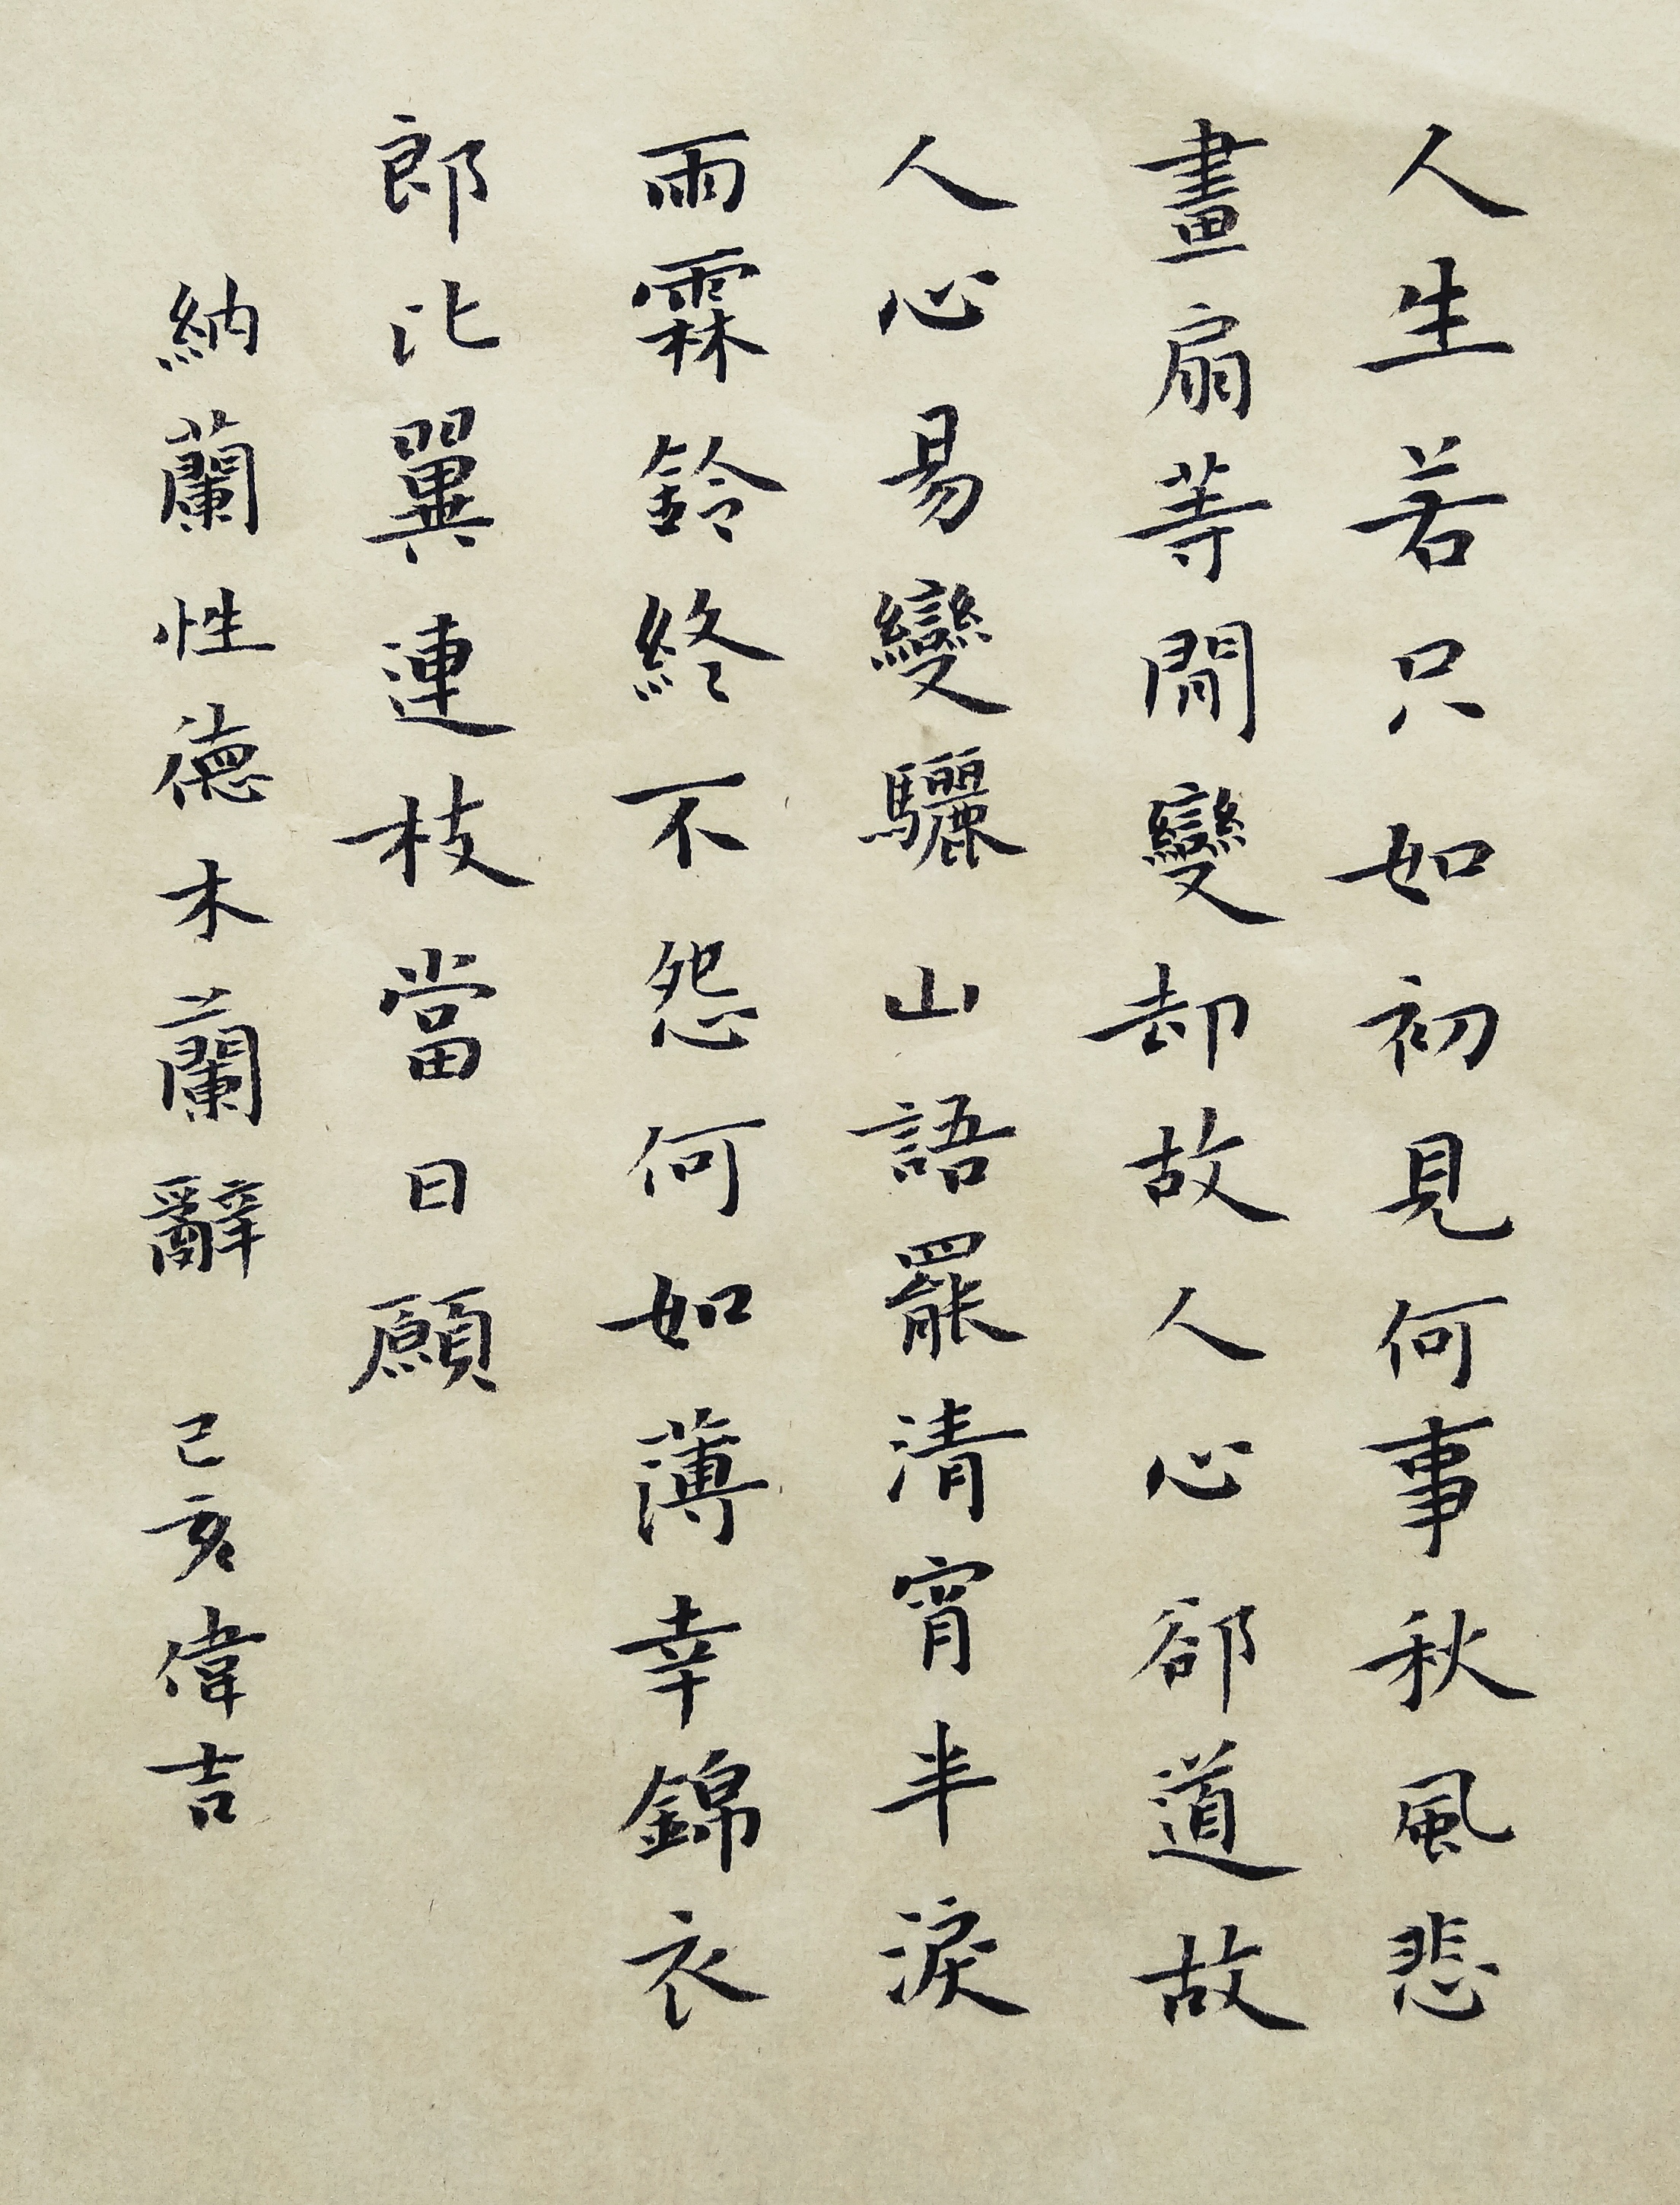 人生若只如初見何事秋風悲
畫扇等閒變却故人心郤道故
人心易變驪山語罷清宵半淚
雨霖鈴終不怨何如薄幸錦衣
郎比翼連枝當日願
納蘭性德木蘭辭 己亥偉吉